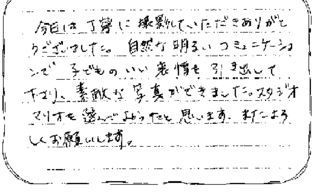 今日は丁寧に撮影していただきありがと
うございました。自然な明るいコミュニケーショ
ンで子どものいい表情を引き出して
下さり、素敵な写真ができました。スタジオ
マリオを選んでよかったと思います。またよろ
しくお願いします。